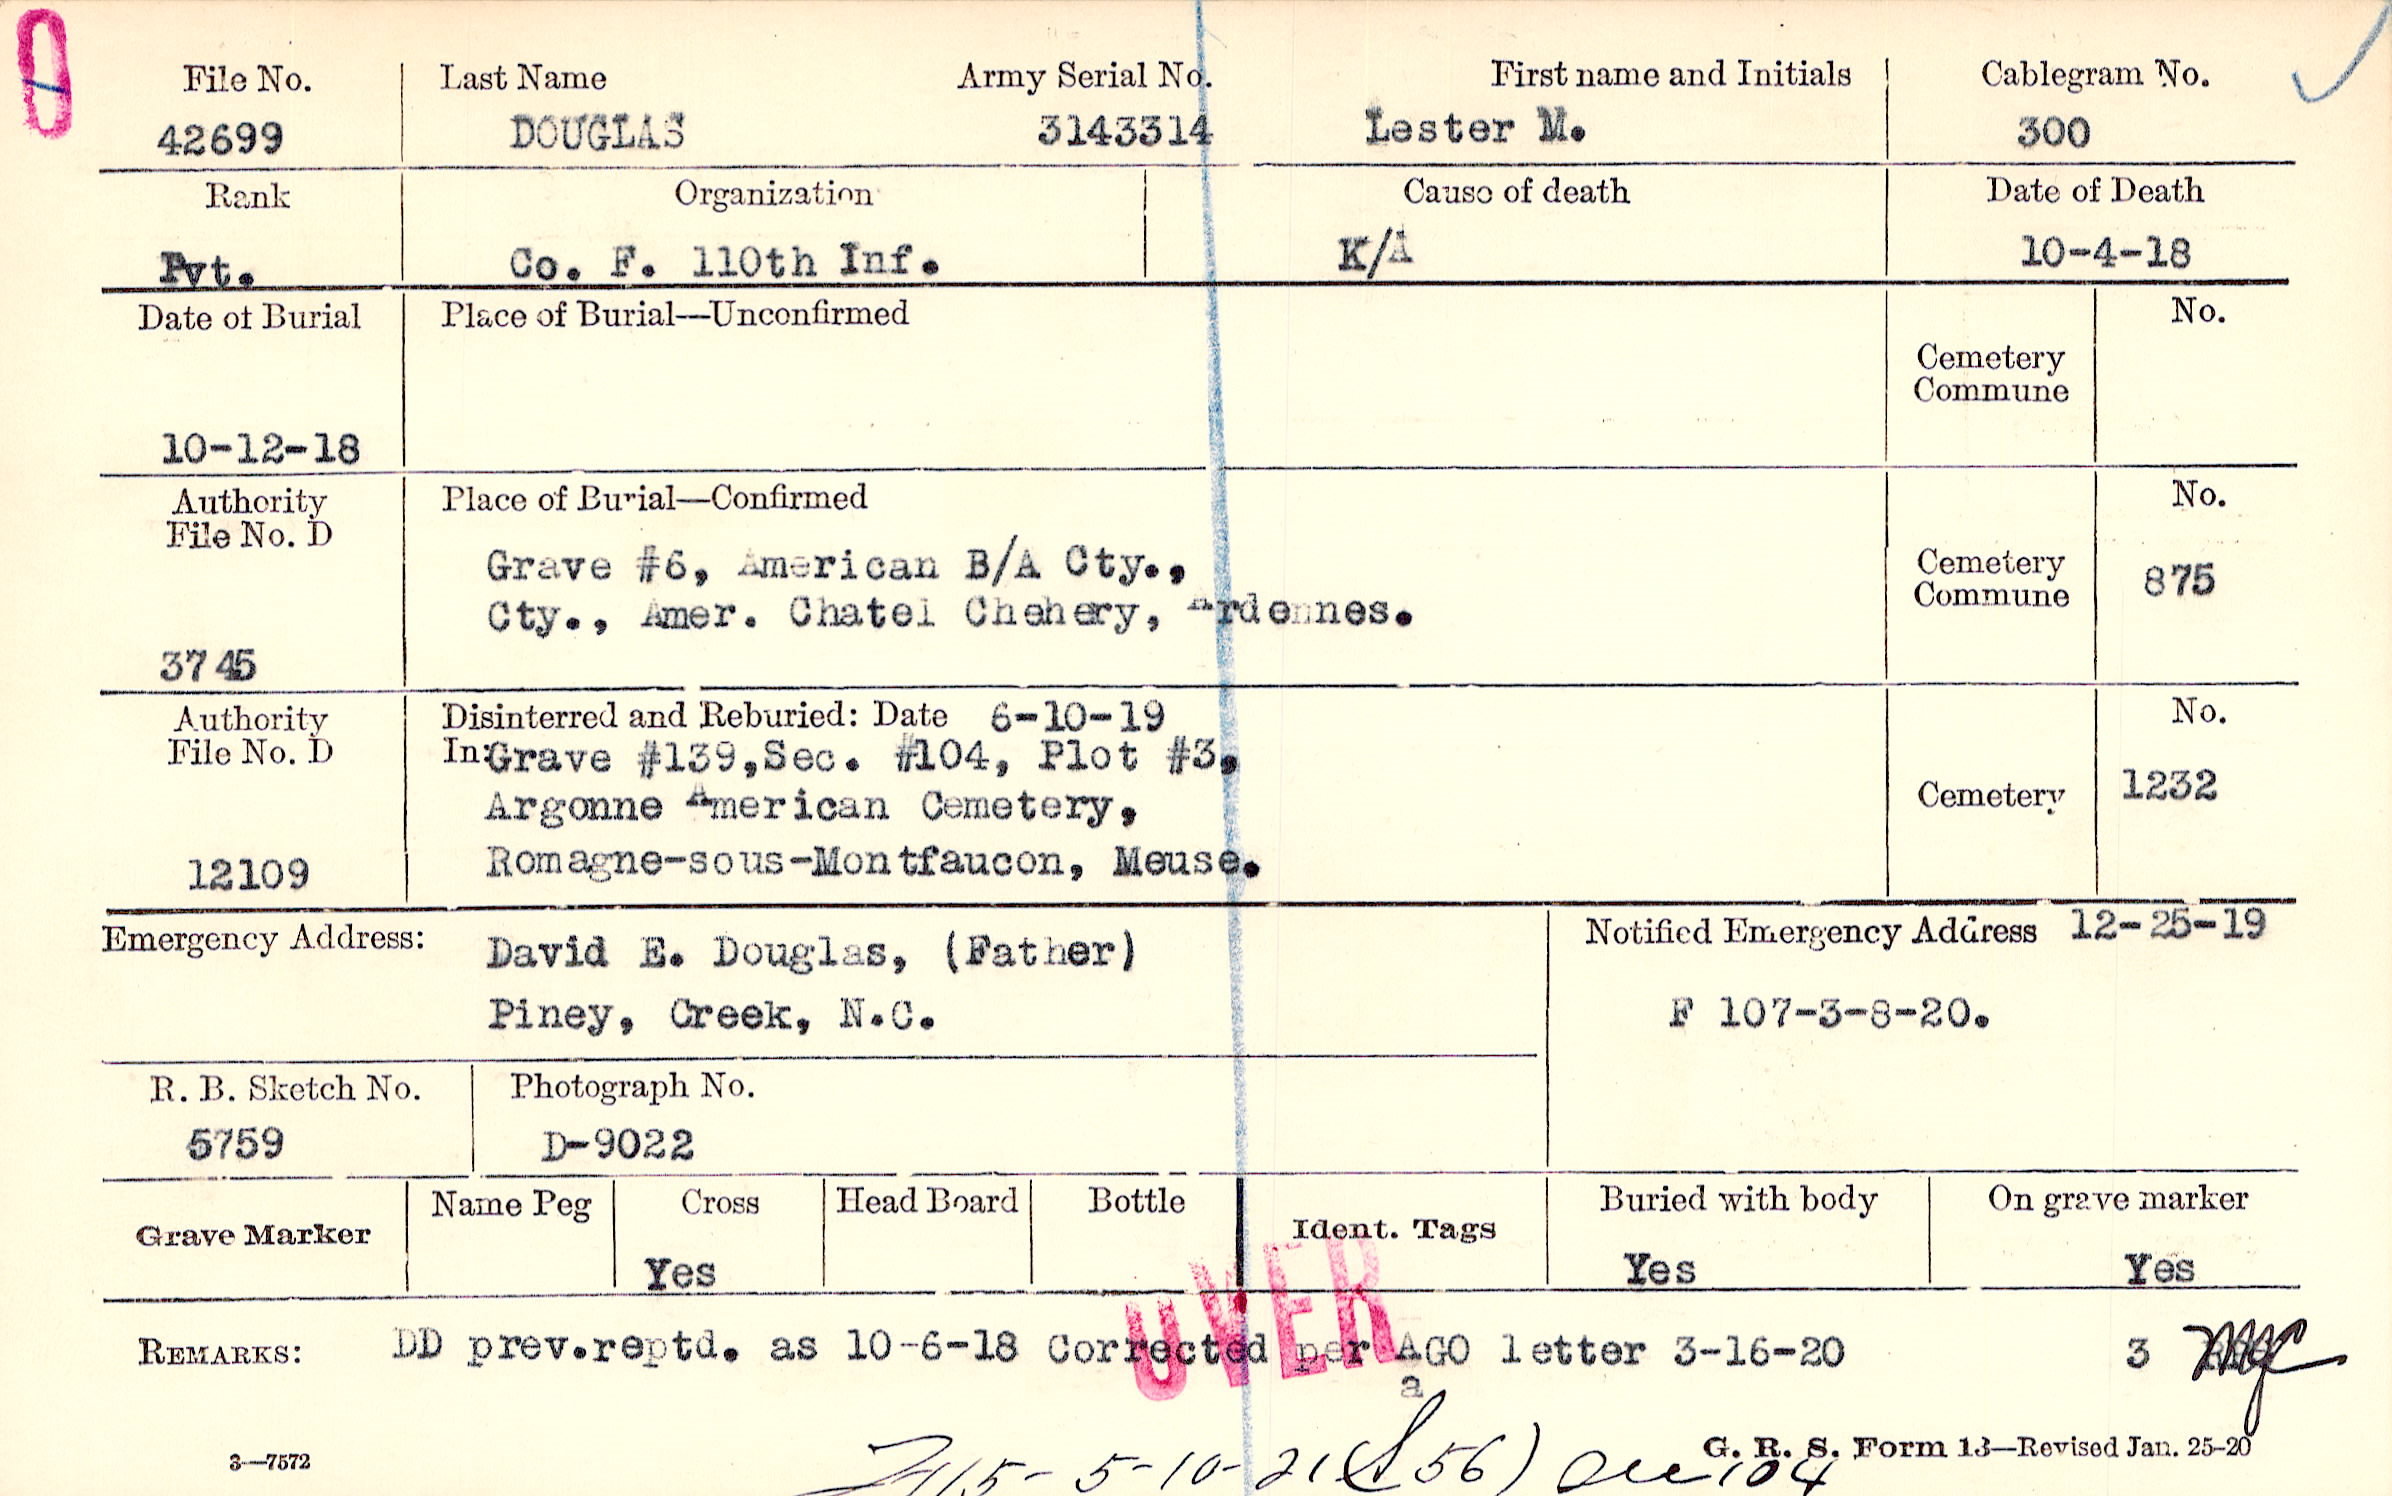 File No. Last Name Army Serial No. First name and Initials Cablegram No.
42699 DOUGLAS 3143314 Lester M. 300
Rank Organization Cause of death Date of Death
Pvt. Co. F. 110th Inf. K/A 10-4-18
Date of Burial Place of Burial—Unconfirmed No.
Cemetery
Commune
10-12-18
Authority Place of Burial—Confirmed No.
File No. D
Grave #6, American B/A Cty.,
Cty., Amer. Chatel Chehery, Ardennes.
Cemetery
Commune 875
3745
Authority Disinterred and Reburied: Date 6-10-19 No.
File No. D In: Grave #139,Sec. #104, Plot #3,
Argonne American Cemetery, Cemetery 1232
12109 Romagne-sous-Montfaucon, Meuse.
Emergency Address: David E. Douglas, (Father) Notified Emergency Address 12-25-19
Piney, Creek, N.C. F 107-3-8-20.
R. B. Sketch No. Photograph No.
5759 D-9022
Grave Marker Name Peg Cross Head Board Bottle Ident. Tags Buried with body On grave marker
Yes Yes Yes
OVER
REMARKS: DD prev.reptd. as 10-6-18 Corrected per AGO letter 3-16-20 3
a
3—7572 G. R. S. Form 13—Revised Jan. 25-20
5-10-21 (S 56) 104